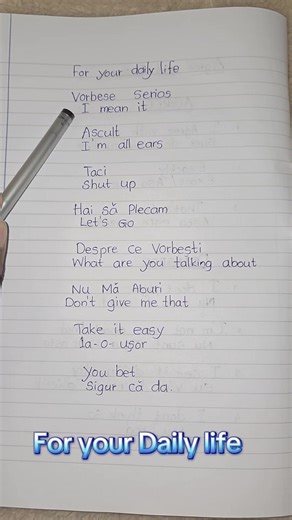 For your daily life
Vorbesc Serios
I mean it
Ascult
I'm all ears
Taci
Shut up
Hai Să Plecam
Let's Go
Despre Ce Vorbești
What are you talking about
Nu Mă Aburi
Don't give me that
Take it easy
Ia-O-Ușor
You bet
Sigur că da.
For your Daily life